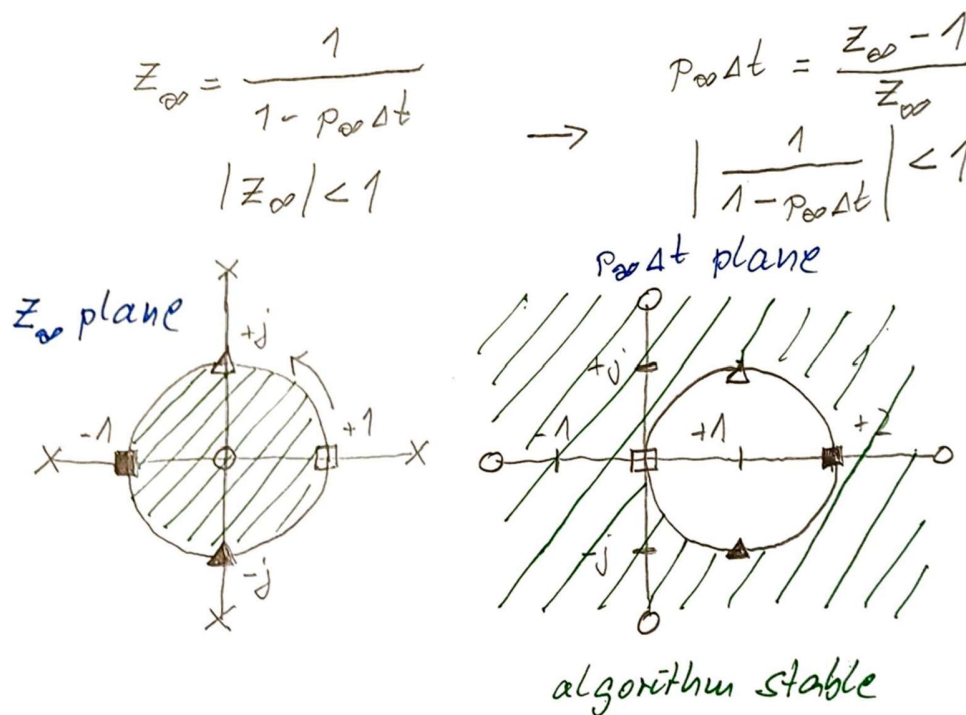 z∞ = 1 / (1 - p∞Δt)
|z∞| < 1
→
p∞Δt = (z∞ - 1) / z∞
| 1 / (1 - p∞Δt) | < 1
z∞ plane
+j
-1
+1
-j
p∞Δt plane
+j
-1
+1
+2
-j
algorithm stable